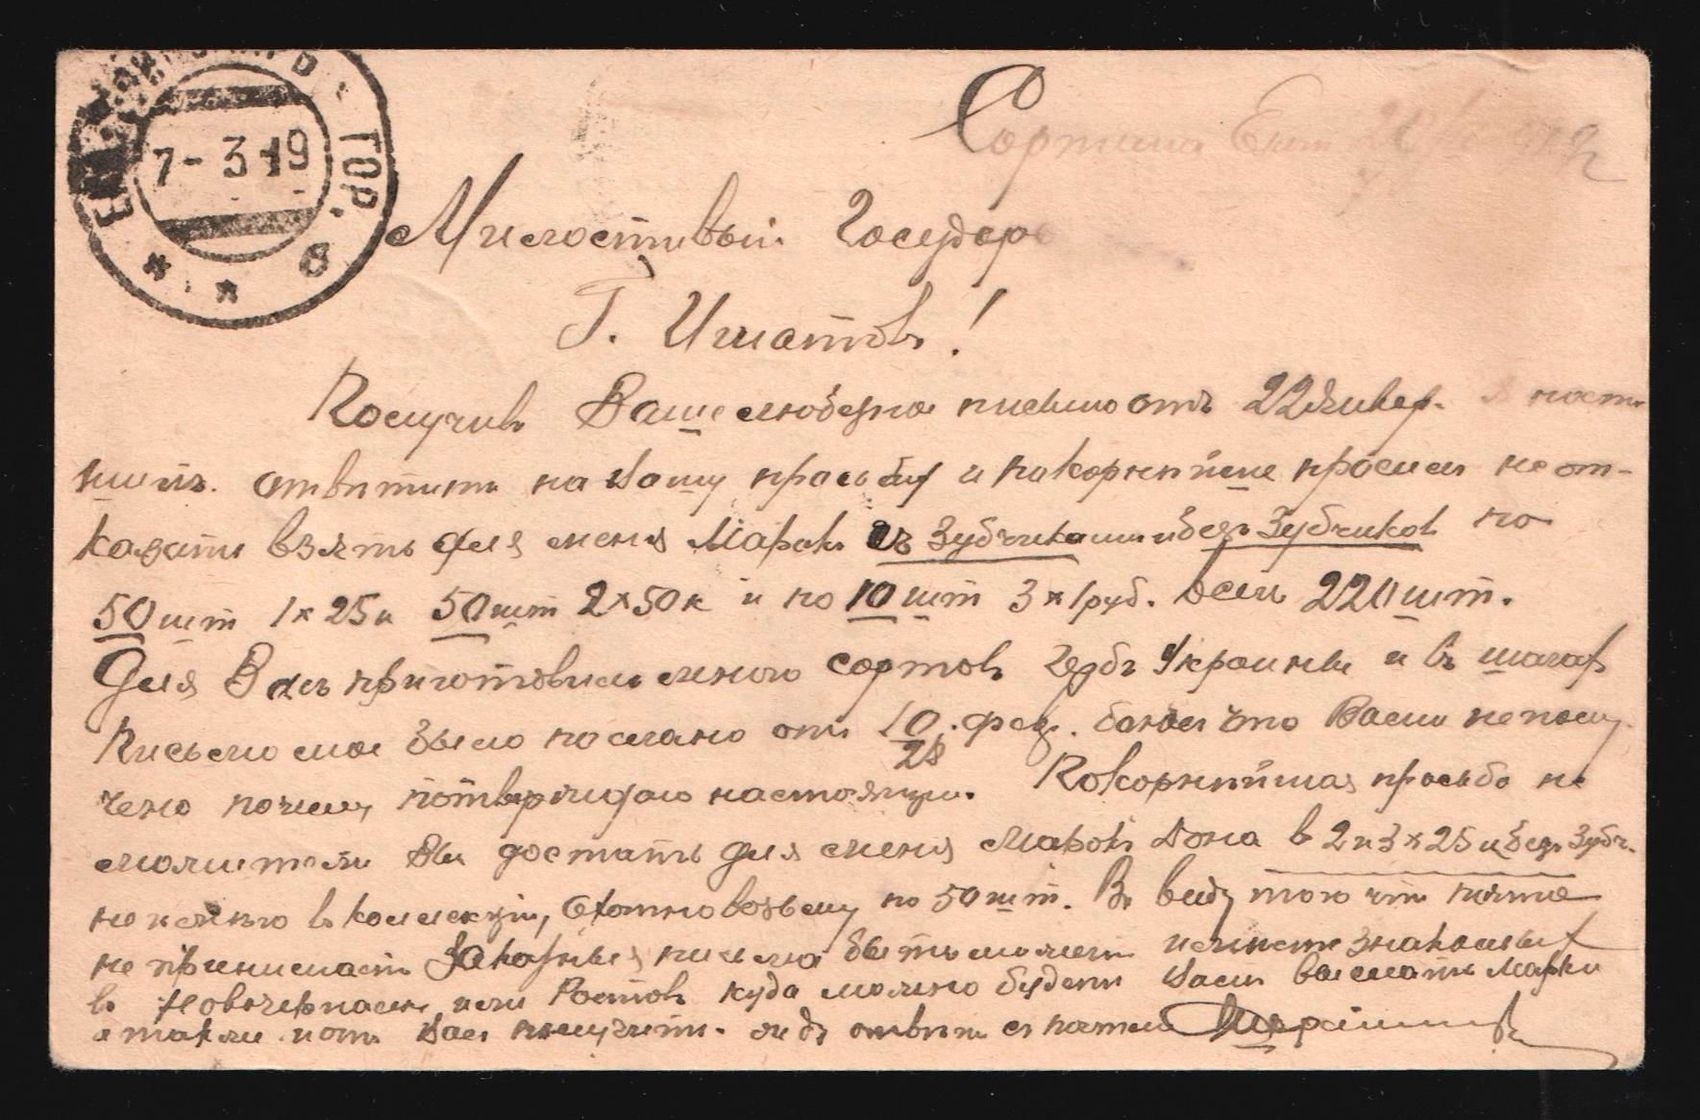 ГОР.
7-3 19
* * 8
Милостивый Государь
Г. Игнатов!
Получив Ваше любезное письмо отъ 22 Январ.
ответить на Вашу просьбу и покорнейше просим не от-
казать взять для меня Марок съ Зубчиками и безъ Зубчиков по
50 шт 1х25к 50 шт 2х50к и по 10 шт 3х1 руб. Всего 220 шт.
Для Вас приготовил много сортов Украины и в
Письмо мое было послано от 10/28 фев. боюсь что Вами не полу-
чено почему потверждаю настоящим. Покорнейшая просьба не
можите ли Вы достать для меня Марок Дона в 2 и 3х25 и безъ Зубч.
не имею в колекции, Охотно возьму по 50 шт. В виду того что почта
не принимает Заказныя письма быть может имеите знакомых
в Новочеркаске или Ростов куда можно будет Вам выслать Марки
а также и от Вас получить. жду ответ с почтой